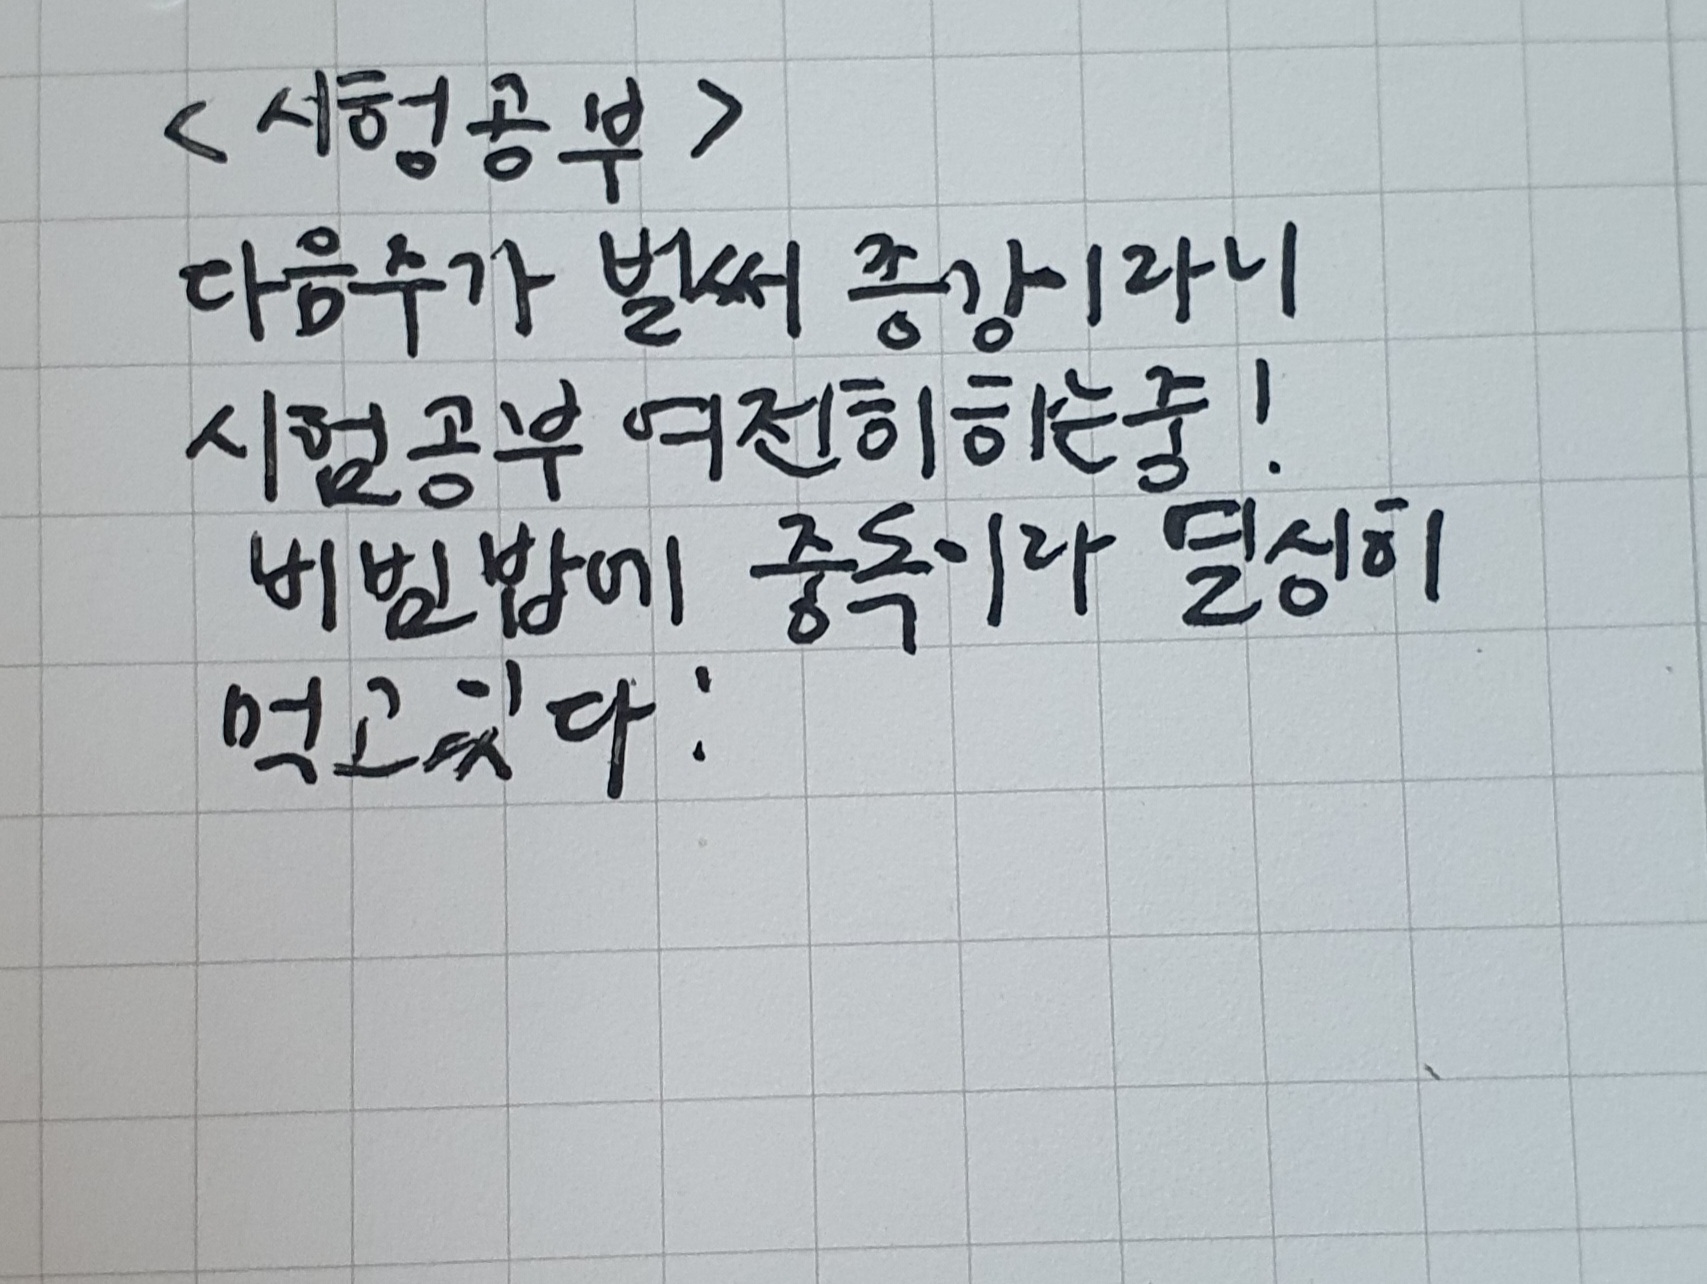 <시헝공부>
다음주가 벌써 종강이라니
시험공부 여전히하는중!
비빔밥에 중독이라 열심히
먹고있다: